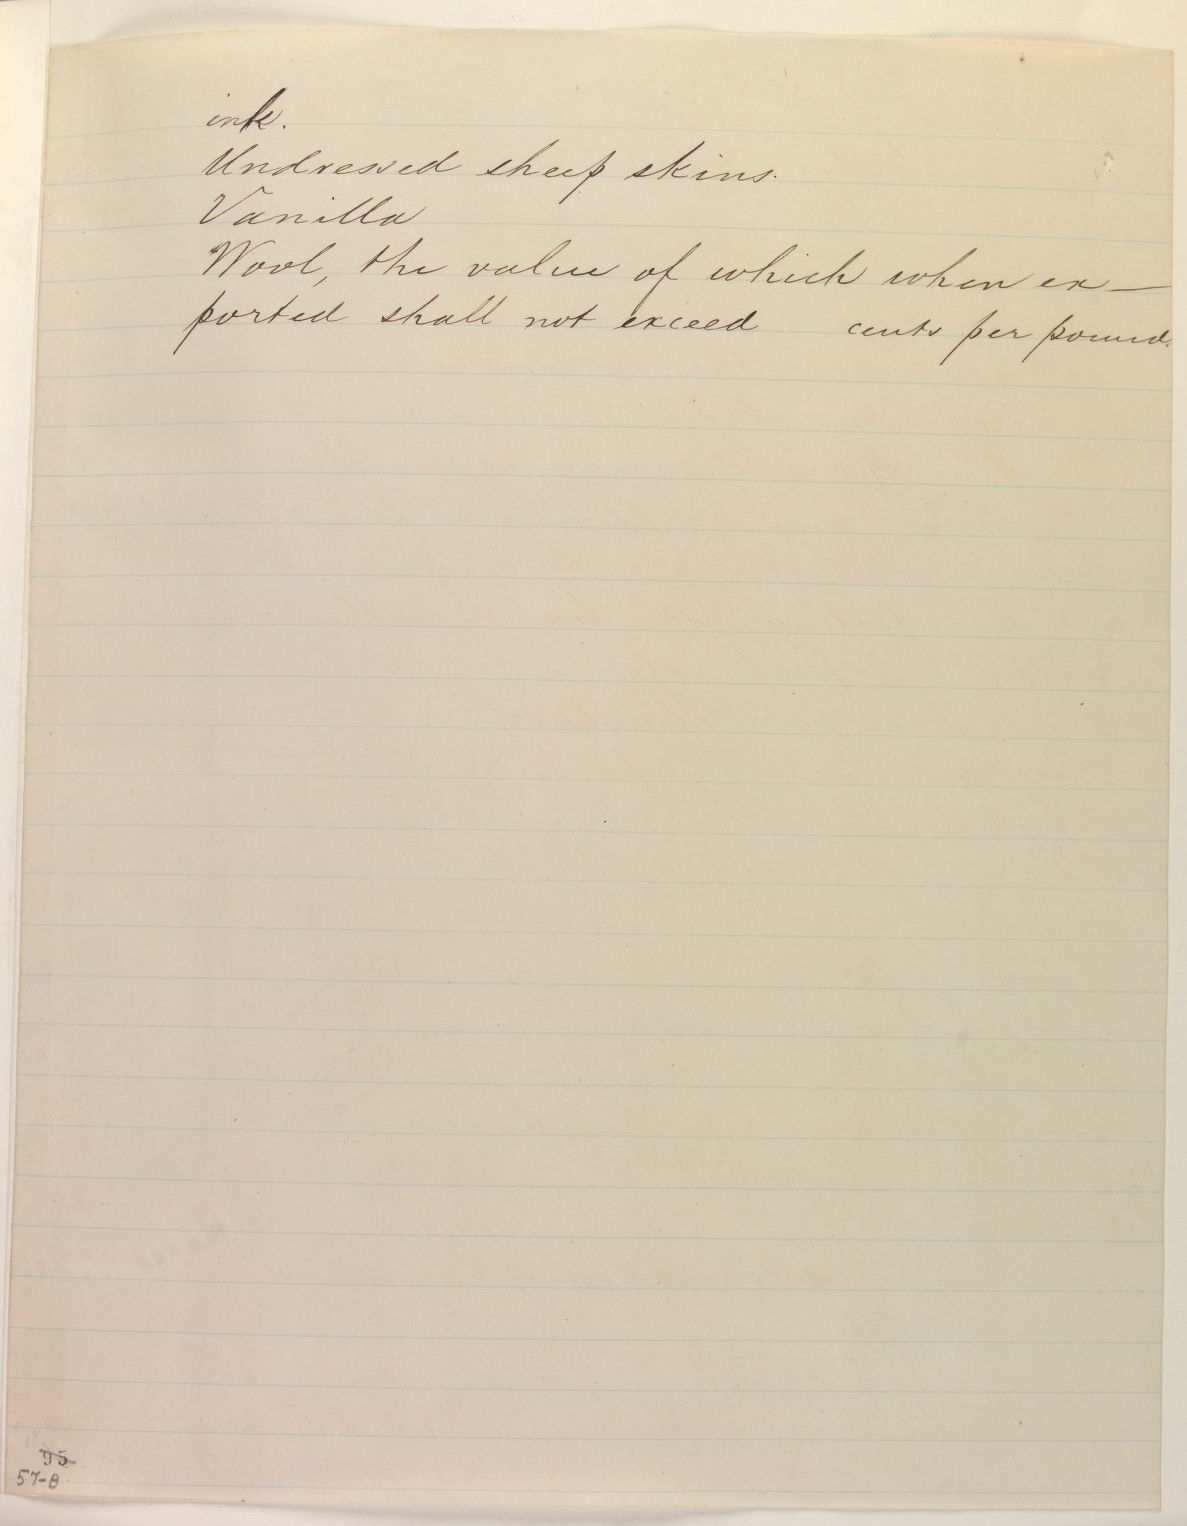 ink.
Undressed sheep skins.
Vanilla
Wool, the value of which when ex-
ported shall not exceed cents per pound.
95
57-B